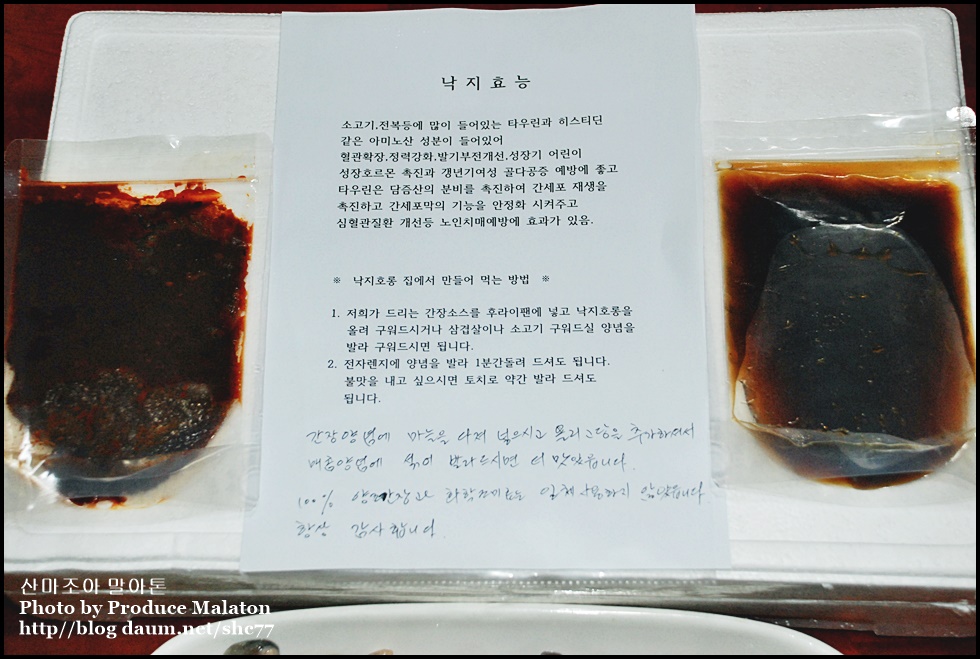 낙지효능
소고기,전복등에 많이 들어있는 타우린과 히스티딘
같은 아미노산 성분이 들어있어
혈관확장,정력강화,발기부전개선,성장기 어린이
성장호르몬 촉진과 갱년기여성 골다공증 예방에 좋고
타우린은 담즙산의 분비를 촉진하여 간세포 재생을
촉진하고 간세포막의 기능을 안정화 시켜주고
심혈관질환 개선등 노인치매예방에 효과가 있음.
※ 낙지호롱 집에서 만들어 먹는 방법 ※
1. 저희가 드리는 간장소스를 후라이팬에 넣고 낙지호롱을
올려 구워드시거나 삼겹살이나 소고기 구워드실 양념을
발라 구워드시면 됩니다.
2. 전자렌지에 양념을 발라 1분간돌려 드셔도 됩니다.
불맛을 내고 싶으시면 토치로 약간 발라 드셔도
됩니다.
간장양념에 마늘을 다져 넣으시고 올리고당을 추가하셔서
매콤양념에 섞어 발라드시면 더 맛있습니다.
100% 양조간장과 화학조미료는 일체 사용하지 않았습니다.
항상 감사합니다.
산마조아 말아톤
Photo by Produce Malaton
http//blog daum.net/shc77